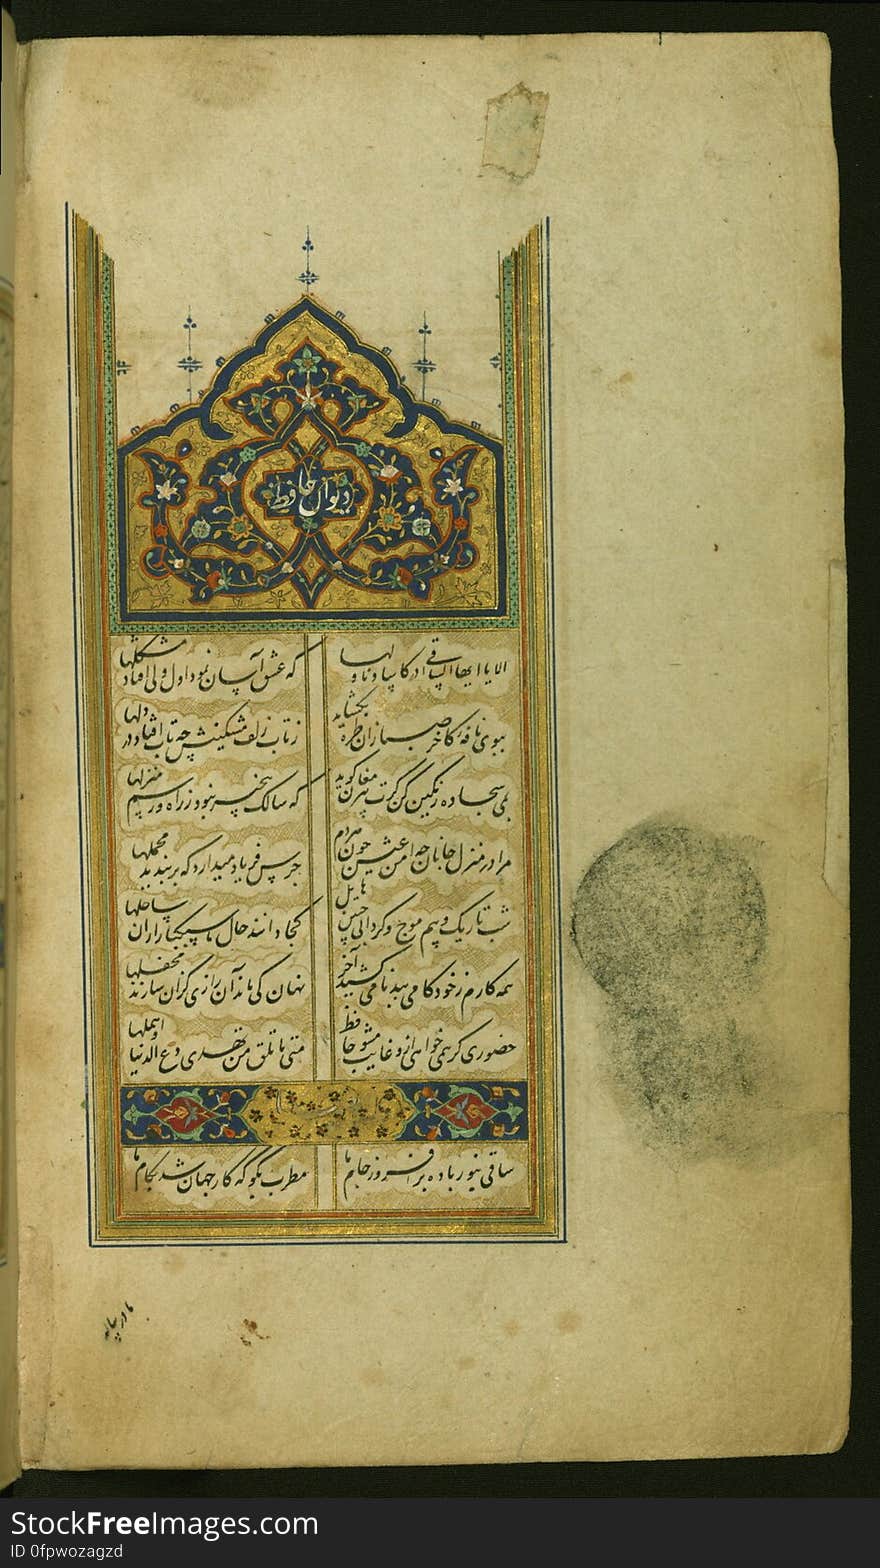 دیوان حافظ
الا یا ایها الساقی ادر کاسا و ناولها که عشق آسان نمود اول ولی افتاد مشکلها
ببوی نافهٔ کاخر صبا زان طره بکشاید ز تاب زلف مشکینش چه تاب افتاد در دلها
بمی سجاده رنگین کن کرت پیر مغان کوید که سالک بیخبر نبود ز راه و رسم منزلها
مرا در منزل جانان چه امن عیش چون هردم جرس فریاد میدارد که بربندید محملها
شب تاریک و بیم موج و کردابی چنین هایل کجا دانند حال ما سبکباران ساحلها
همه کارم ز خود کامی ببدنامی کشید آخر نهان کی ماند آن رازی کزان سازند محفلها
حضوری کر همی خواهی ازو غایب مشو حافظ متی ما تلق من تهوی دع الدنیا و اهملها
ساقی بنور باده برافروز جام ما مطرب بکو که کار جهان شد بکام ما
ما در پیاله
StockFreeImages.com
ID 0fpwozagzd